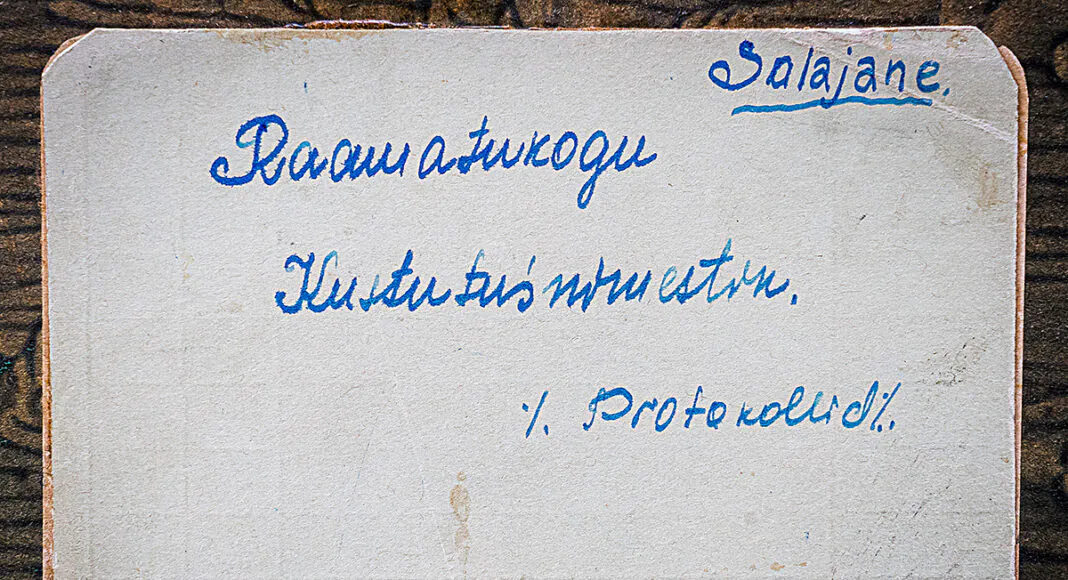 Salajane.
Raamatukogu
Kustutusnimestik.
·/. Protokollid/.